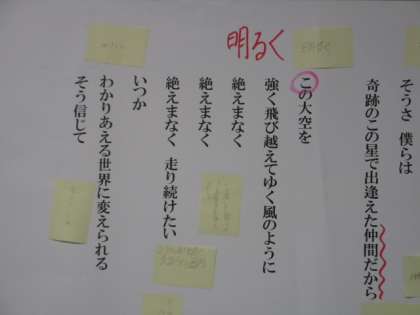 明るく
そうさ 僕らは
奇跡のこの星で出逢えた仲間だから
この大空を
強く飛び越えてゆく風のように
絶えまなく
絶えまなく
絶えまなく 走り続けたい
いつか
わかりあえる世界に変えられる
そう信じて